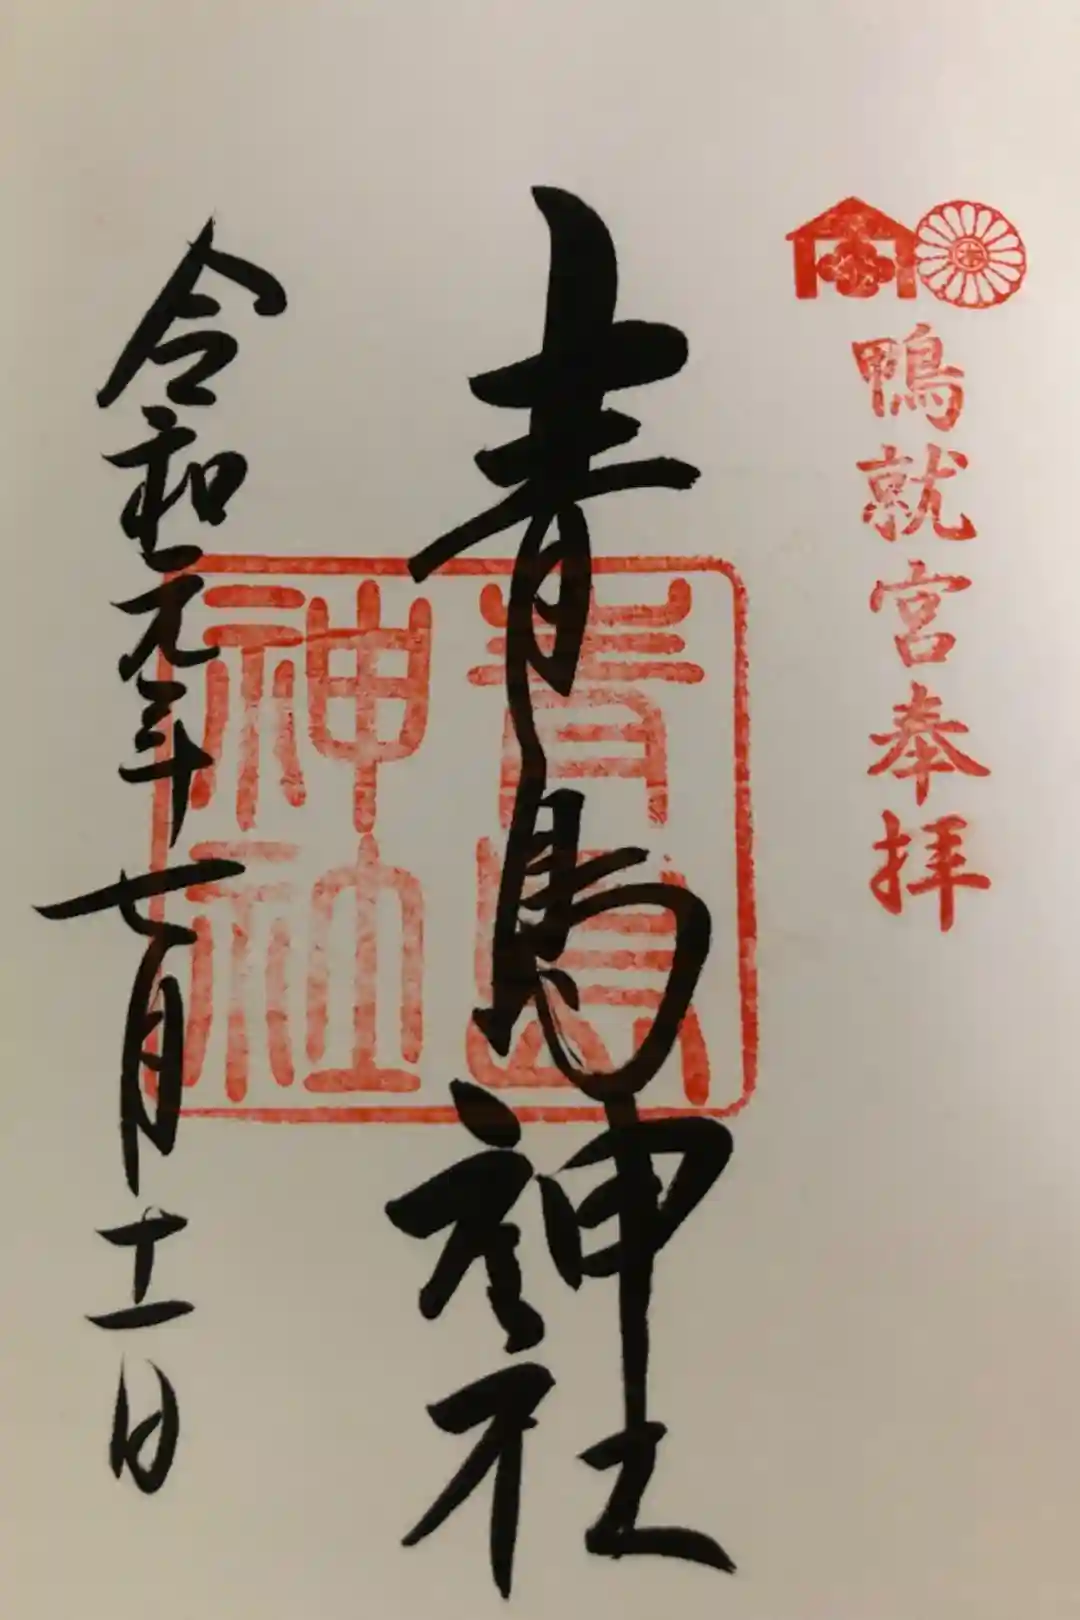 鴨就宮奉拝
青島神社
青島神社
令和元年七月十一日